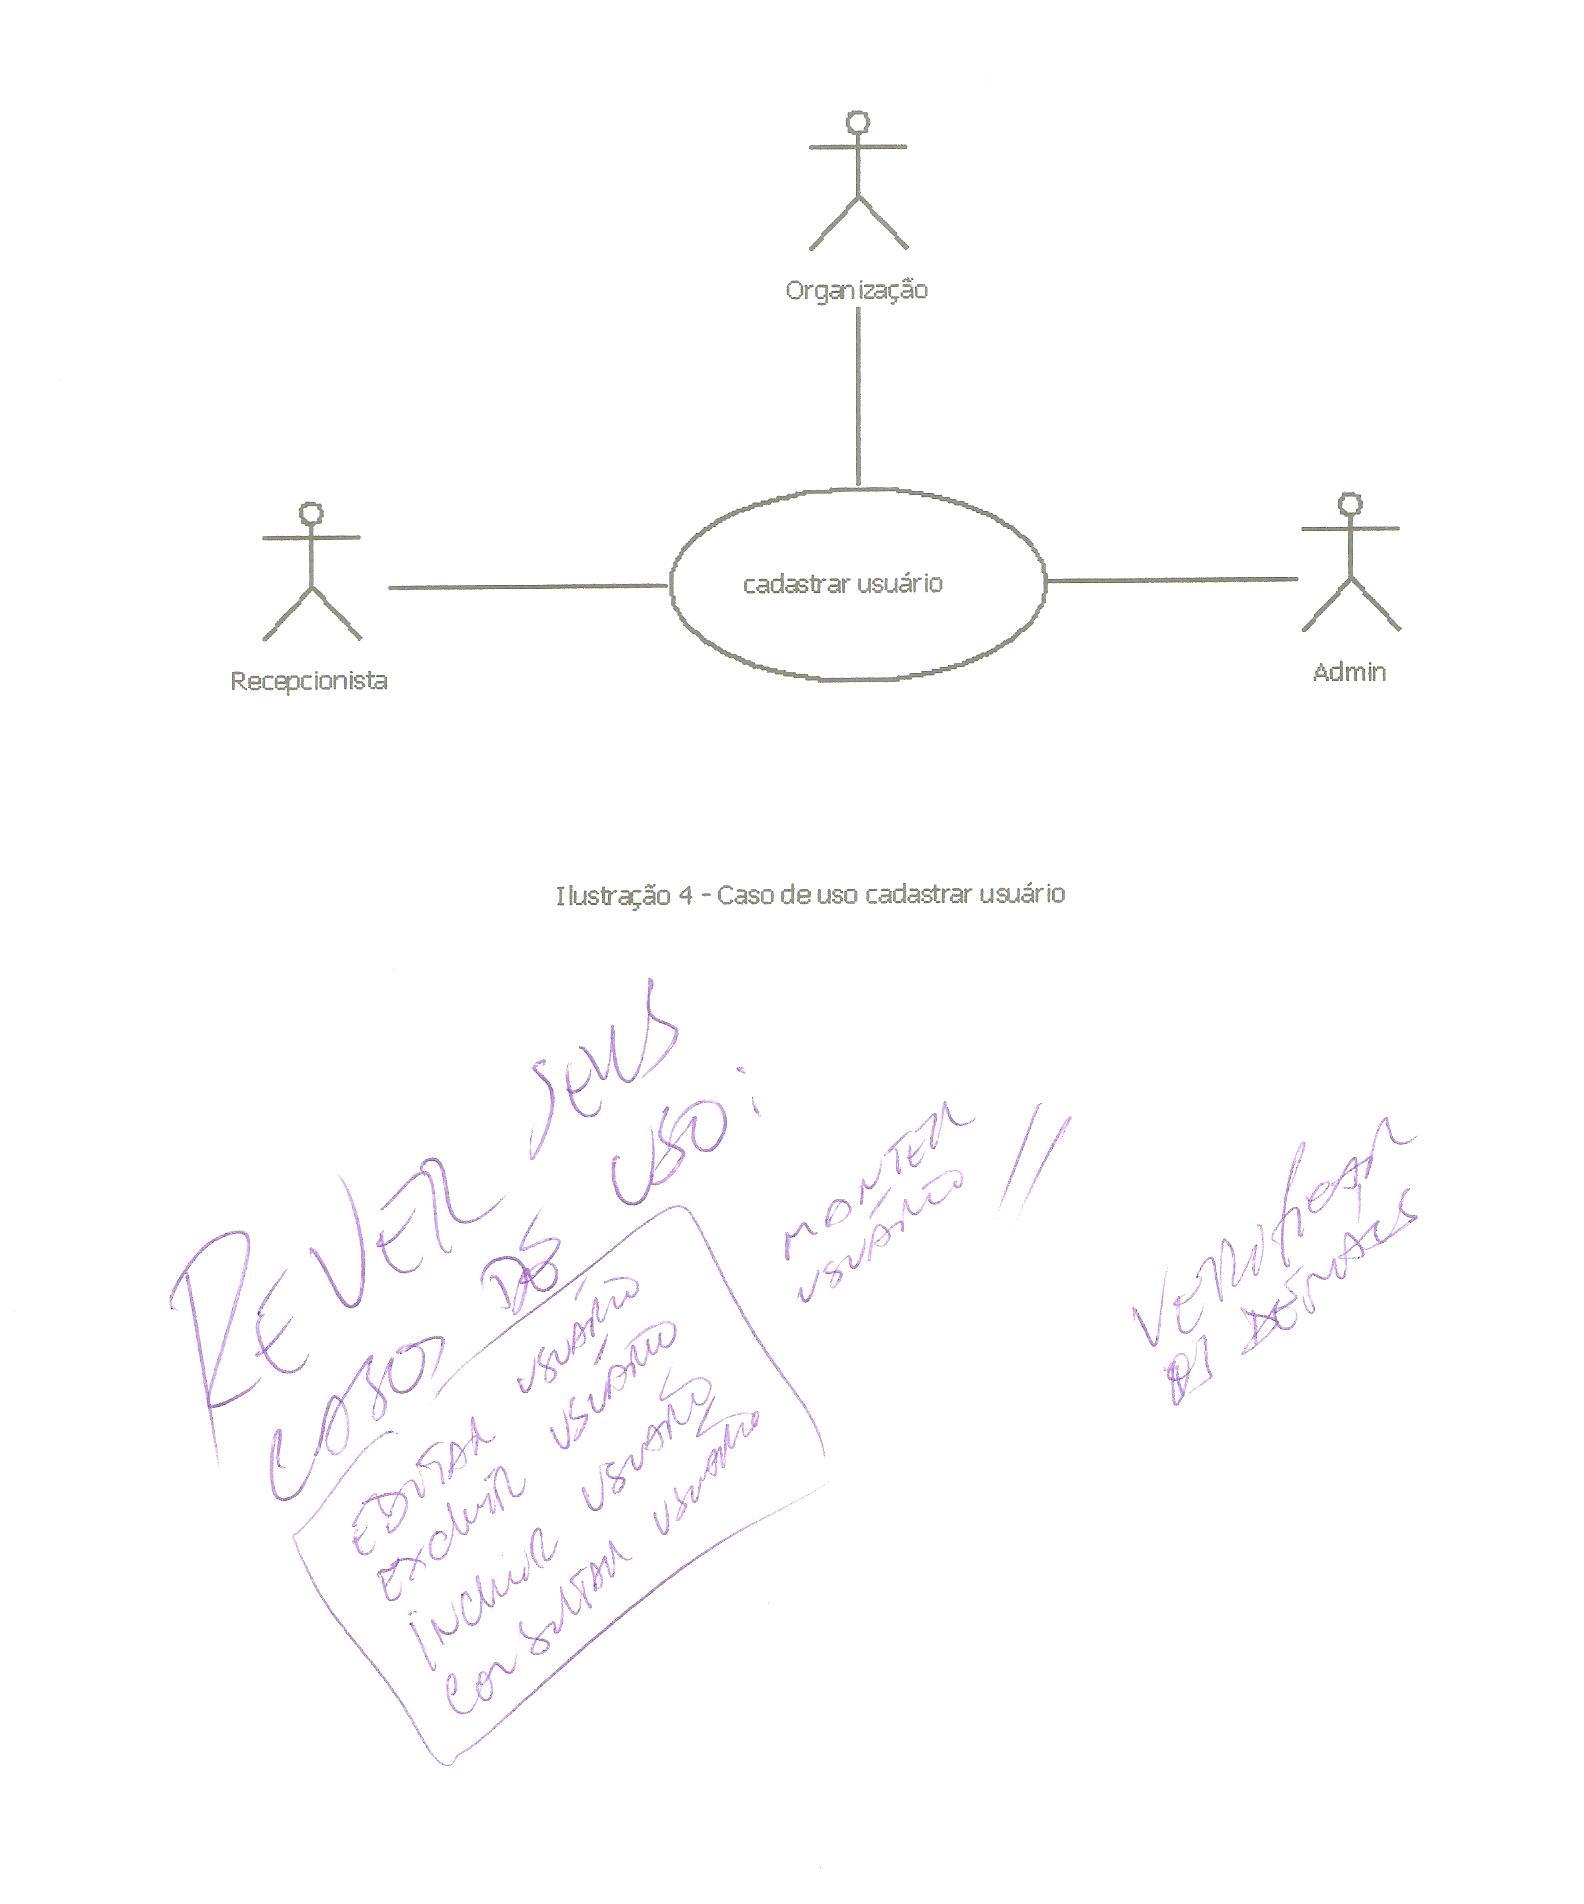 Organização
cadastrar usuário
Recepcionista
Admin
Ilustração 4 - Caso de uso cadastrar usuário
REVER SEUS
CASOS DE USO:
EDITAR USUÁRIO
EXCLUIR USUÁRIO
INCLUIR USUÁRIO
CONSULTAR USUÁRIO
MANTER
USUÁRIO //
VERIFICAR
OS DEMAIS